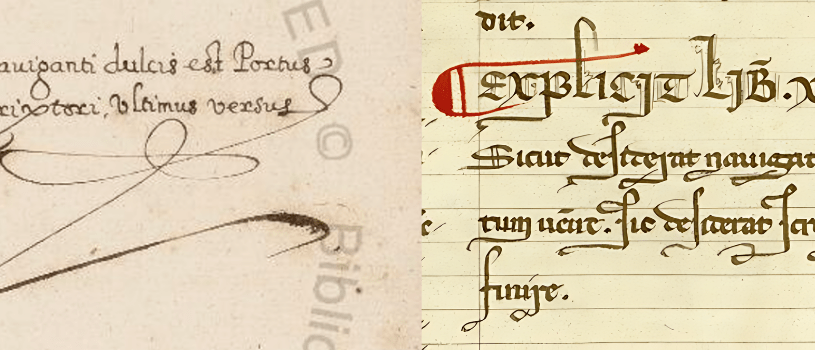 auiganti dulcis est Portus
rixtori, Vltimus versus
dit.
Explicit lib̄.
Sicut desiderat nauigat
tum uenire. sic desiderat scr
finire.